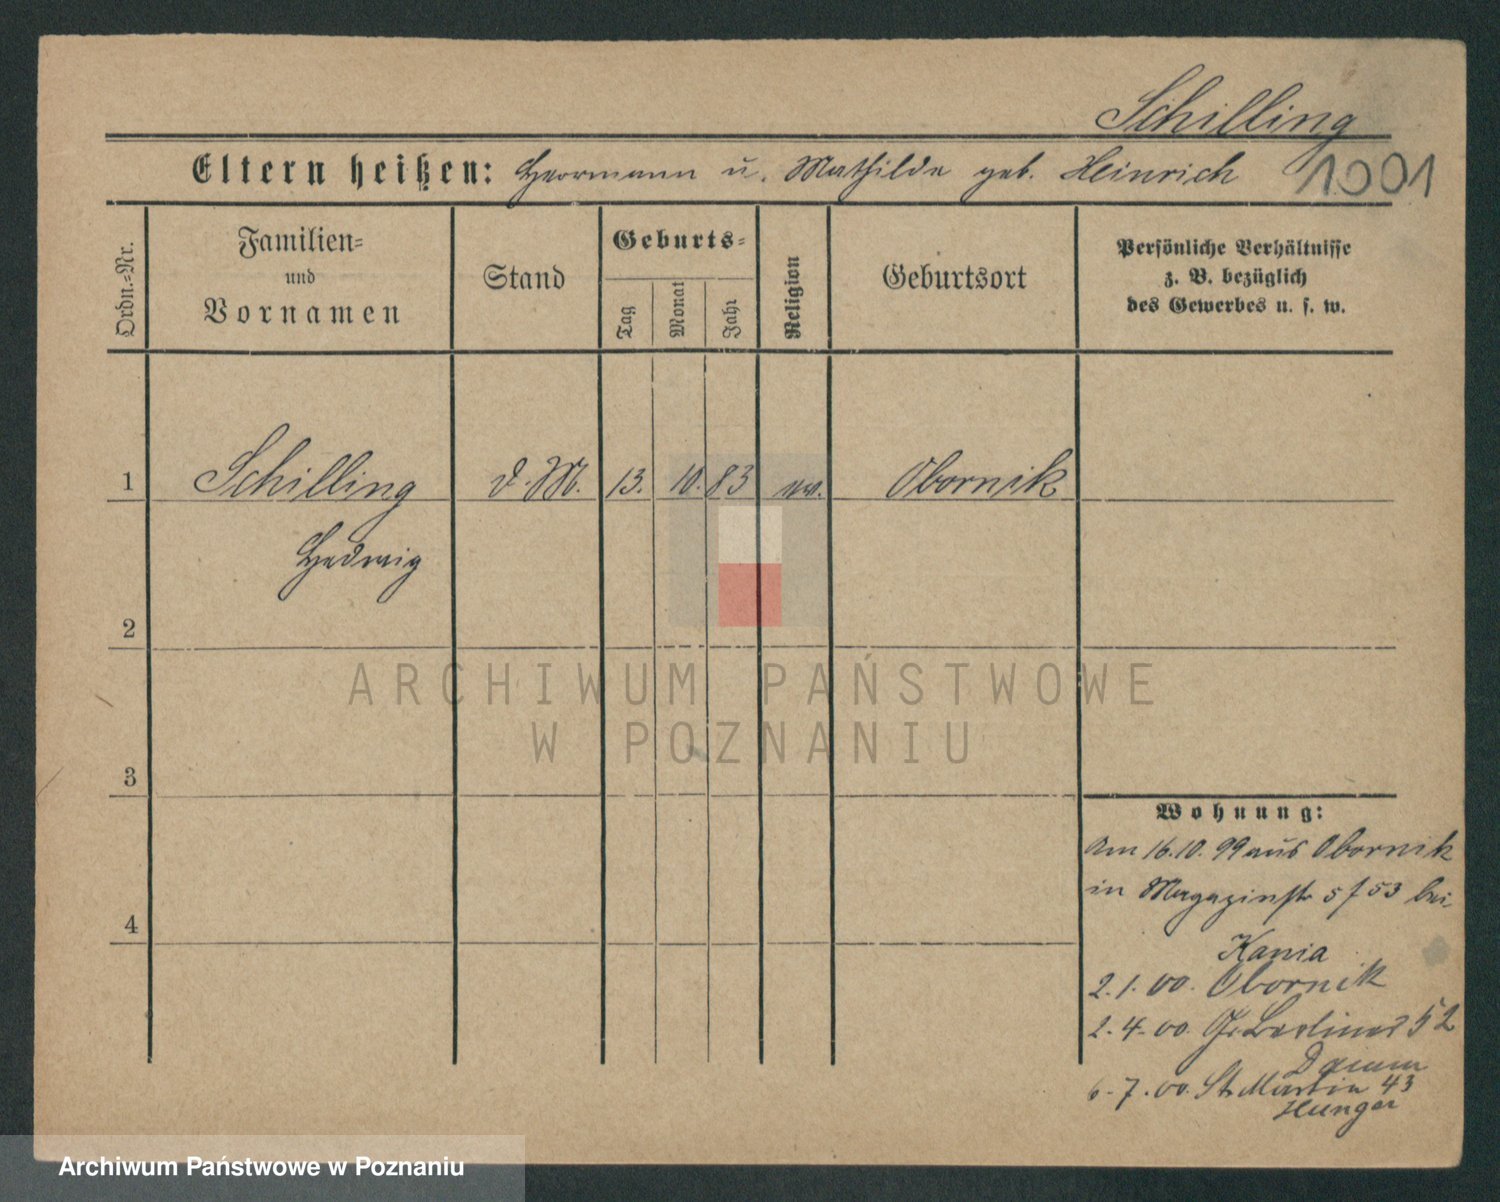 Schilling
Eltern heißen: Herrmann u. Mathilde geb. Heinrich 1001
Ordn.-Nr.
Familien-
und
Vornamen
Stand
Geburts-
Tag
Monat
Jahr
Religion
Geburtsort
Persönliche Verhältnisse
z. B. bezüglich
des Gewerbes u. s. w.
1 Schilling d. M. 13. 10. 83 ev. Obornik
Hedwig
2
3
4
Wohnung:
Am 16.10.99 aus Obornik
in Magazinstr 5 / 53 bei
Kania
2.1.00. Obornik
2.4.00. Gr. Berliner 52
6.7.00. St. Martin 43
Hunger
ARCHIWUM PAŃSTWOWE
W POZNANIU
Archiwum Państwowe w Poznaniu